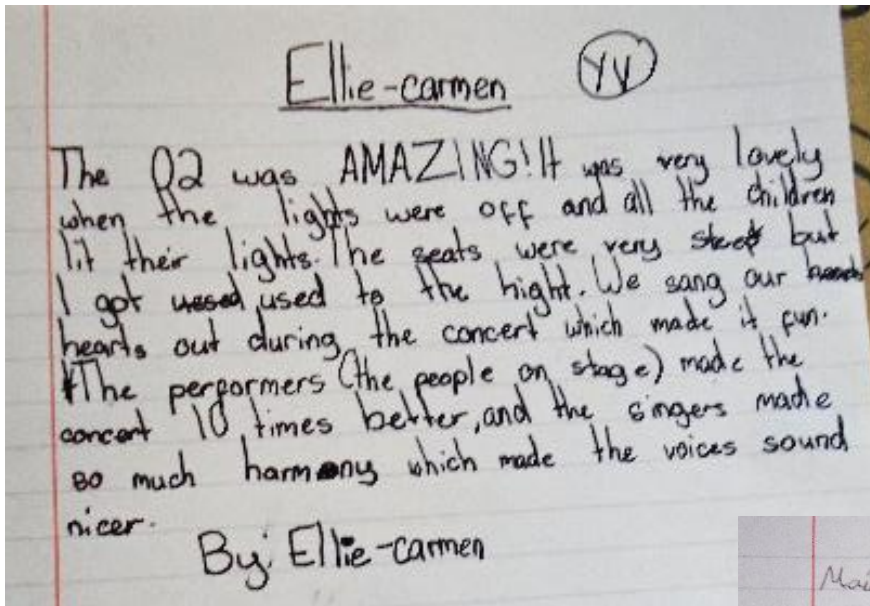 Ellie-carmen YV
The O2 was AMAZING! It was very lovely
when the lights were off and all the children
lit their lights. The seats were very but
I got used to the hight. We sang our
hearts out during the concert which made it fun.
The performers (the people on stage) made the
concert 10 times better, and the singers made
so much harmony which made the voices sound
nicer.
By: Ellie-carmen